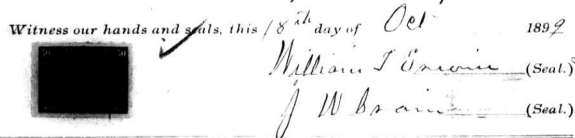 Witness our hands and seals, this 18th day of Oct 1899
William T Erwin (Seal.)
J W Brain (Seal.)